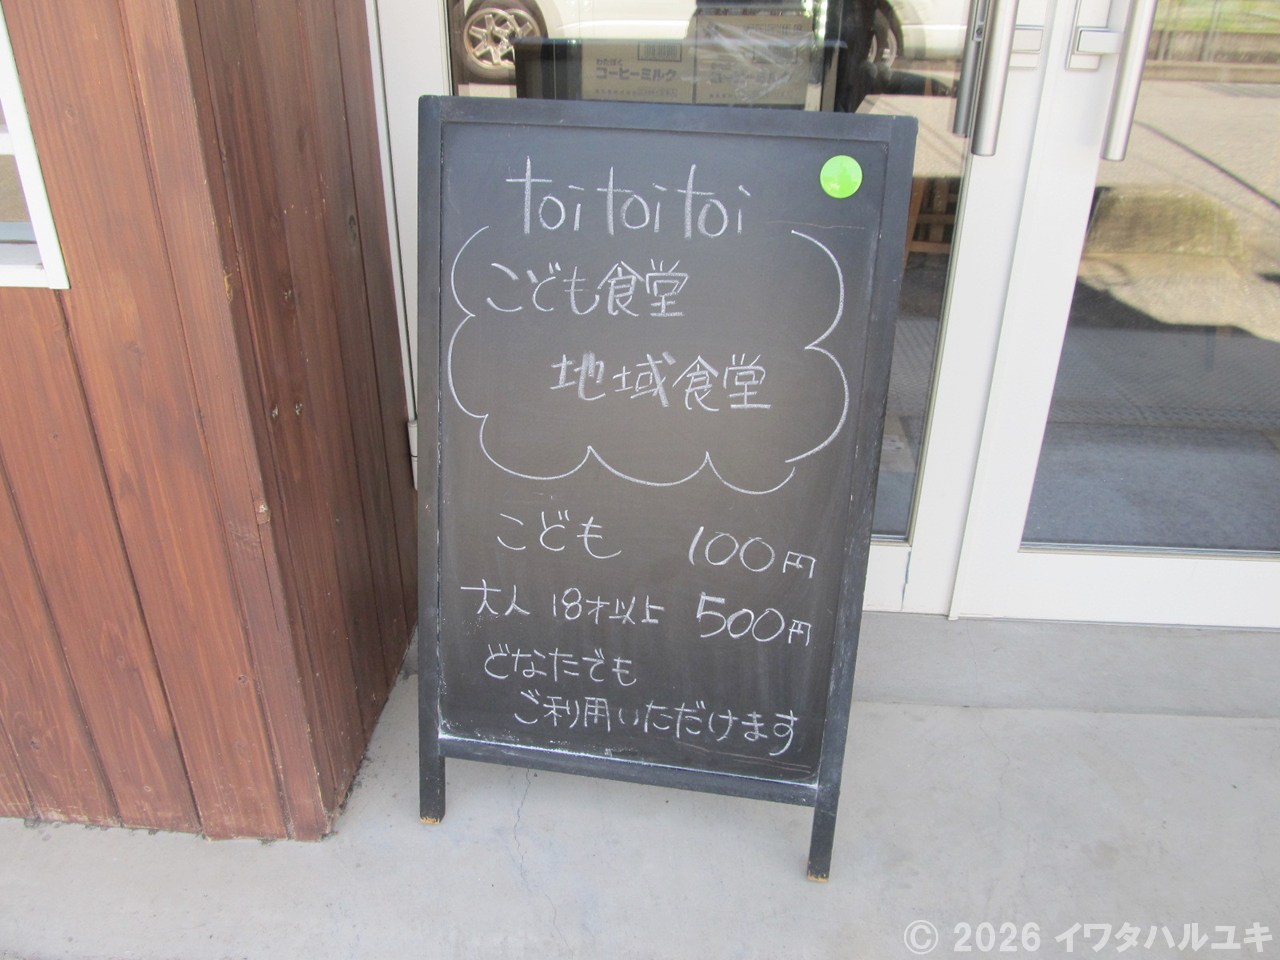 わたぼく
コーヒーミルク
toi toi toi
こども食堂
地域食堂
こども 100円
大人 18才以上 500円
どなたでも
ご利用いただけます
© 2026 イワタハルユキ